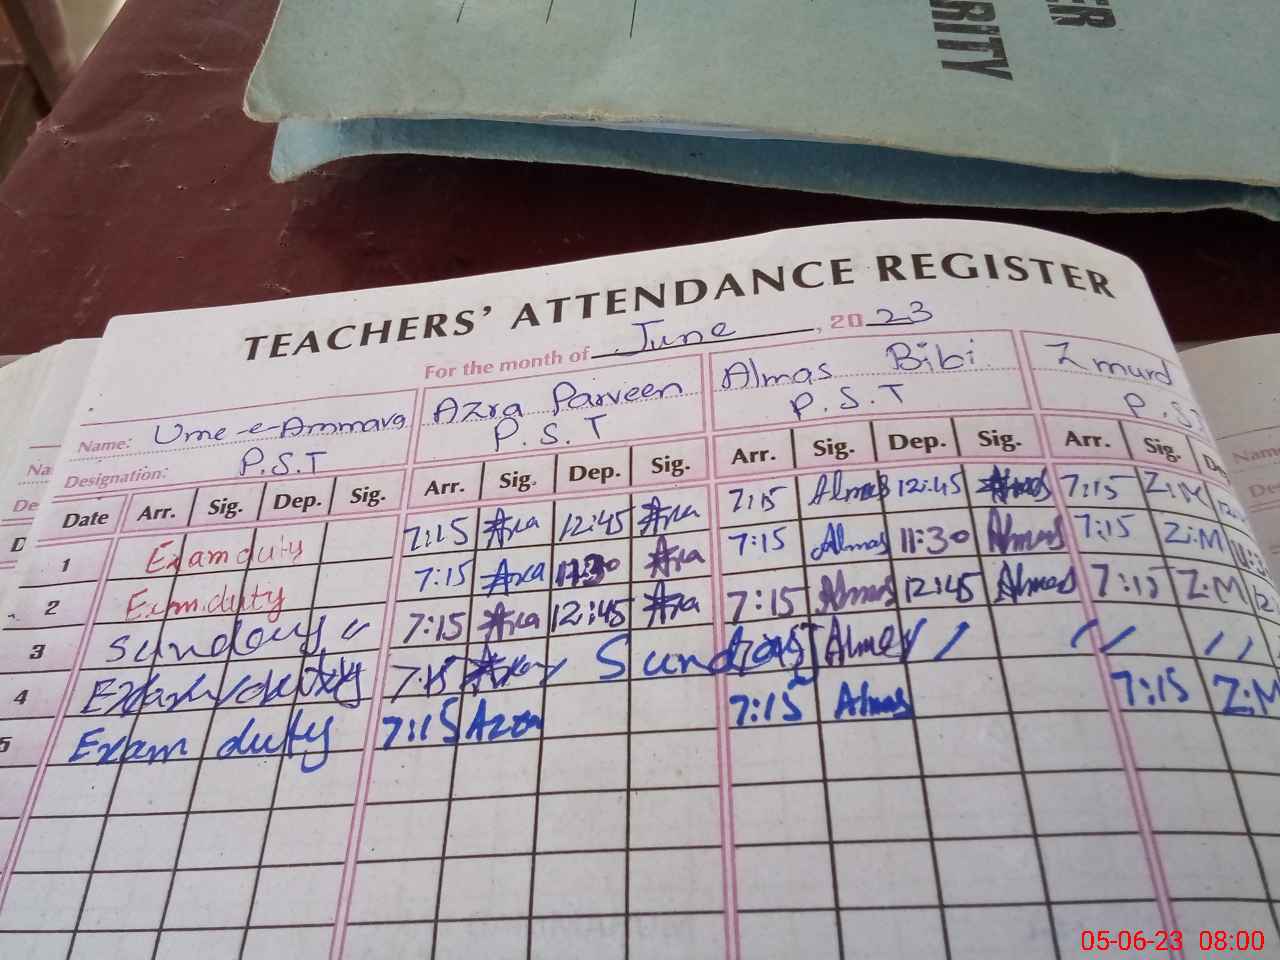 ER
RITY
TEACHERS' ATTENDANCE REGISTER
For the month of June, 2023
Name: Ume-e-Ammara Azra Parveen Almas Bibi Zmurd
Designation: P.S.T P.S.T P.S.T P.S
Date Arr. Sig. Dep. Sig. Arr. Sig. Dep. Sig. Arr. Sig. Dep. Sig. Arr. Sig. De
1 Exam duty 7:15 Azra 12:45 Azra 7:15 Almas 12:45 Almas 7:15 Z.M
2 Exam duty 7:15 Azra 11:30 Azra 7:15 Almas 11:30 Almas 7:15 Z.M 11:3
3 7:15 Azra 12:45 Azra 7:15 Almas 12:45 Almas 7:15 Z.M 12
4 Sunday 7:15 Azra Sunday Almas
5 Exam duty 7:15 Azra 7:15 Almas 7:15 Z.M
Na
De
Name
De
05-06-23 08:00